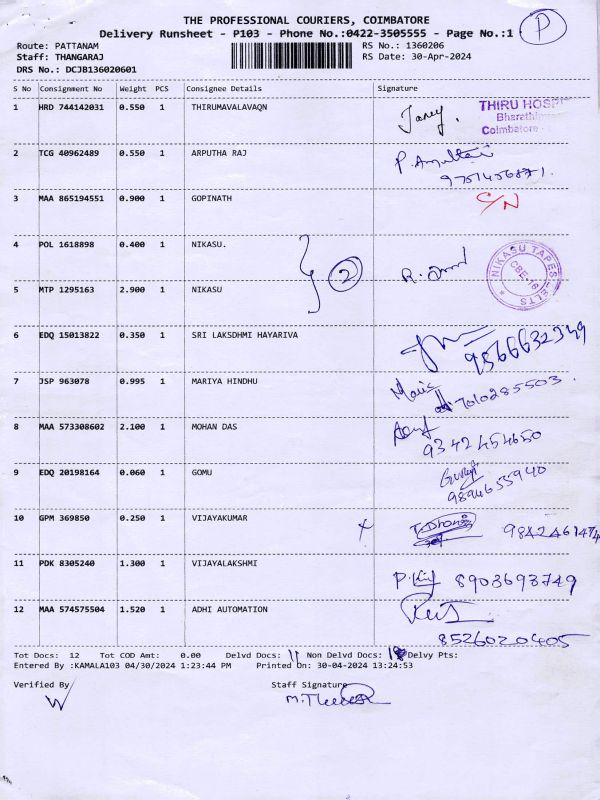 THE PROFESSIONAL COURIERS, COIMBATORE
Delivery Runsheet - P103 - Phone No.:0422-3505555 - Page No.:1 P
Route: PATTANAM RS No.: 1360206
Staff: THANGARAJ RS Date: 30-Apr-2024
DRS No.: DCJB136020601
S No Consignment No Weight PCS Consignee Details Signature
1 HRD 744142031 0.550 1 THIRUMAVALAVAQN
THIRU HOSPI
Bharathi
Coimbatore
2 TCG 40962489 0.550 1 ARPUTHA RAJ
9751456871.
3 MAA 865194551 0.900 1 GOPINATH C/N
4 POL 1618898 0.400 1 NIKASU.
2
NIKASU TAPES
CBE-16
5 MTP 1295163 2.900 1 NIKASU
6 EDQ 15013822 0.350 1 SRI LAKSDHMI HAYARIVA
9566632349
7 JSP 963078 0.995 1 MARIYA HINDHU
7010285503.
8 MAA 573308602 2.100 1 MOHAN DAS
9342454650
9 EDQ 20198164 0.060 1 GOMU
9894655940
10 GPM 369850 0.250 1 VIJAYAKUMAR
11 PDK 8305240 1.300 1 VIJAYALAKSHMI
8903693749
12 MAA 574575504 1.520 1 ADHI AUTOMATION
8526020405
Tot Docs: 12 Tot COD Amt: 0.00 Delvd Docs: 11 Non Delvd Docs: Delvy Pts:
Entered By :KAMALA103 04/30/2024 1:23:44 PM Printed On: 30-04-2024 13:24:53
Verified By Staff Signature